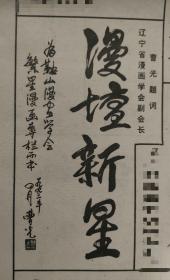 曹光题词
辽宁省漫画学会副会长
漫壇新星
为鞍山漫画学会
繁星漫画专栏而书
曹光